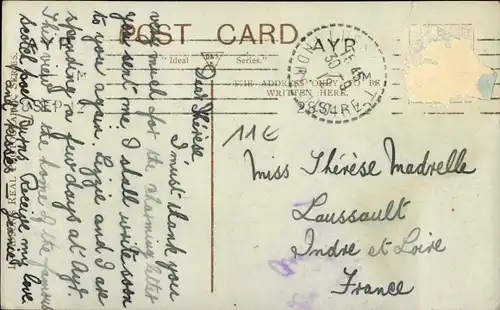 POST CARD
"Ideal Series."
THE ADDRESS ONLY TO BE
WRITTEN HERE
AYR
Dear Thérèse
I must thank you
very much for the charming letter
you sent me. I shall write soon
to you again. Lizzie and I are
spending a few days at Ayr.
This view is the home of the famous
Scotch poet Burns. Receive my love
and kisses
11€
Miss Thérèse Madrelle
Laussault
Indre et Loire
France